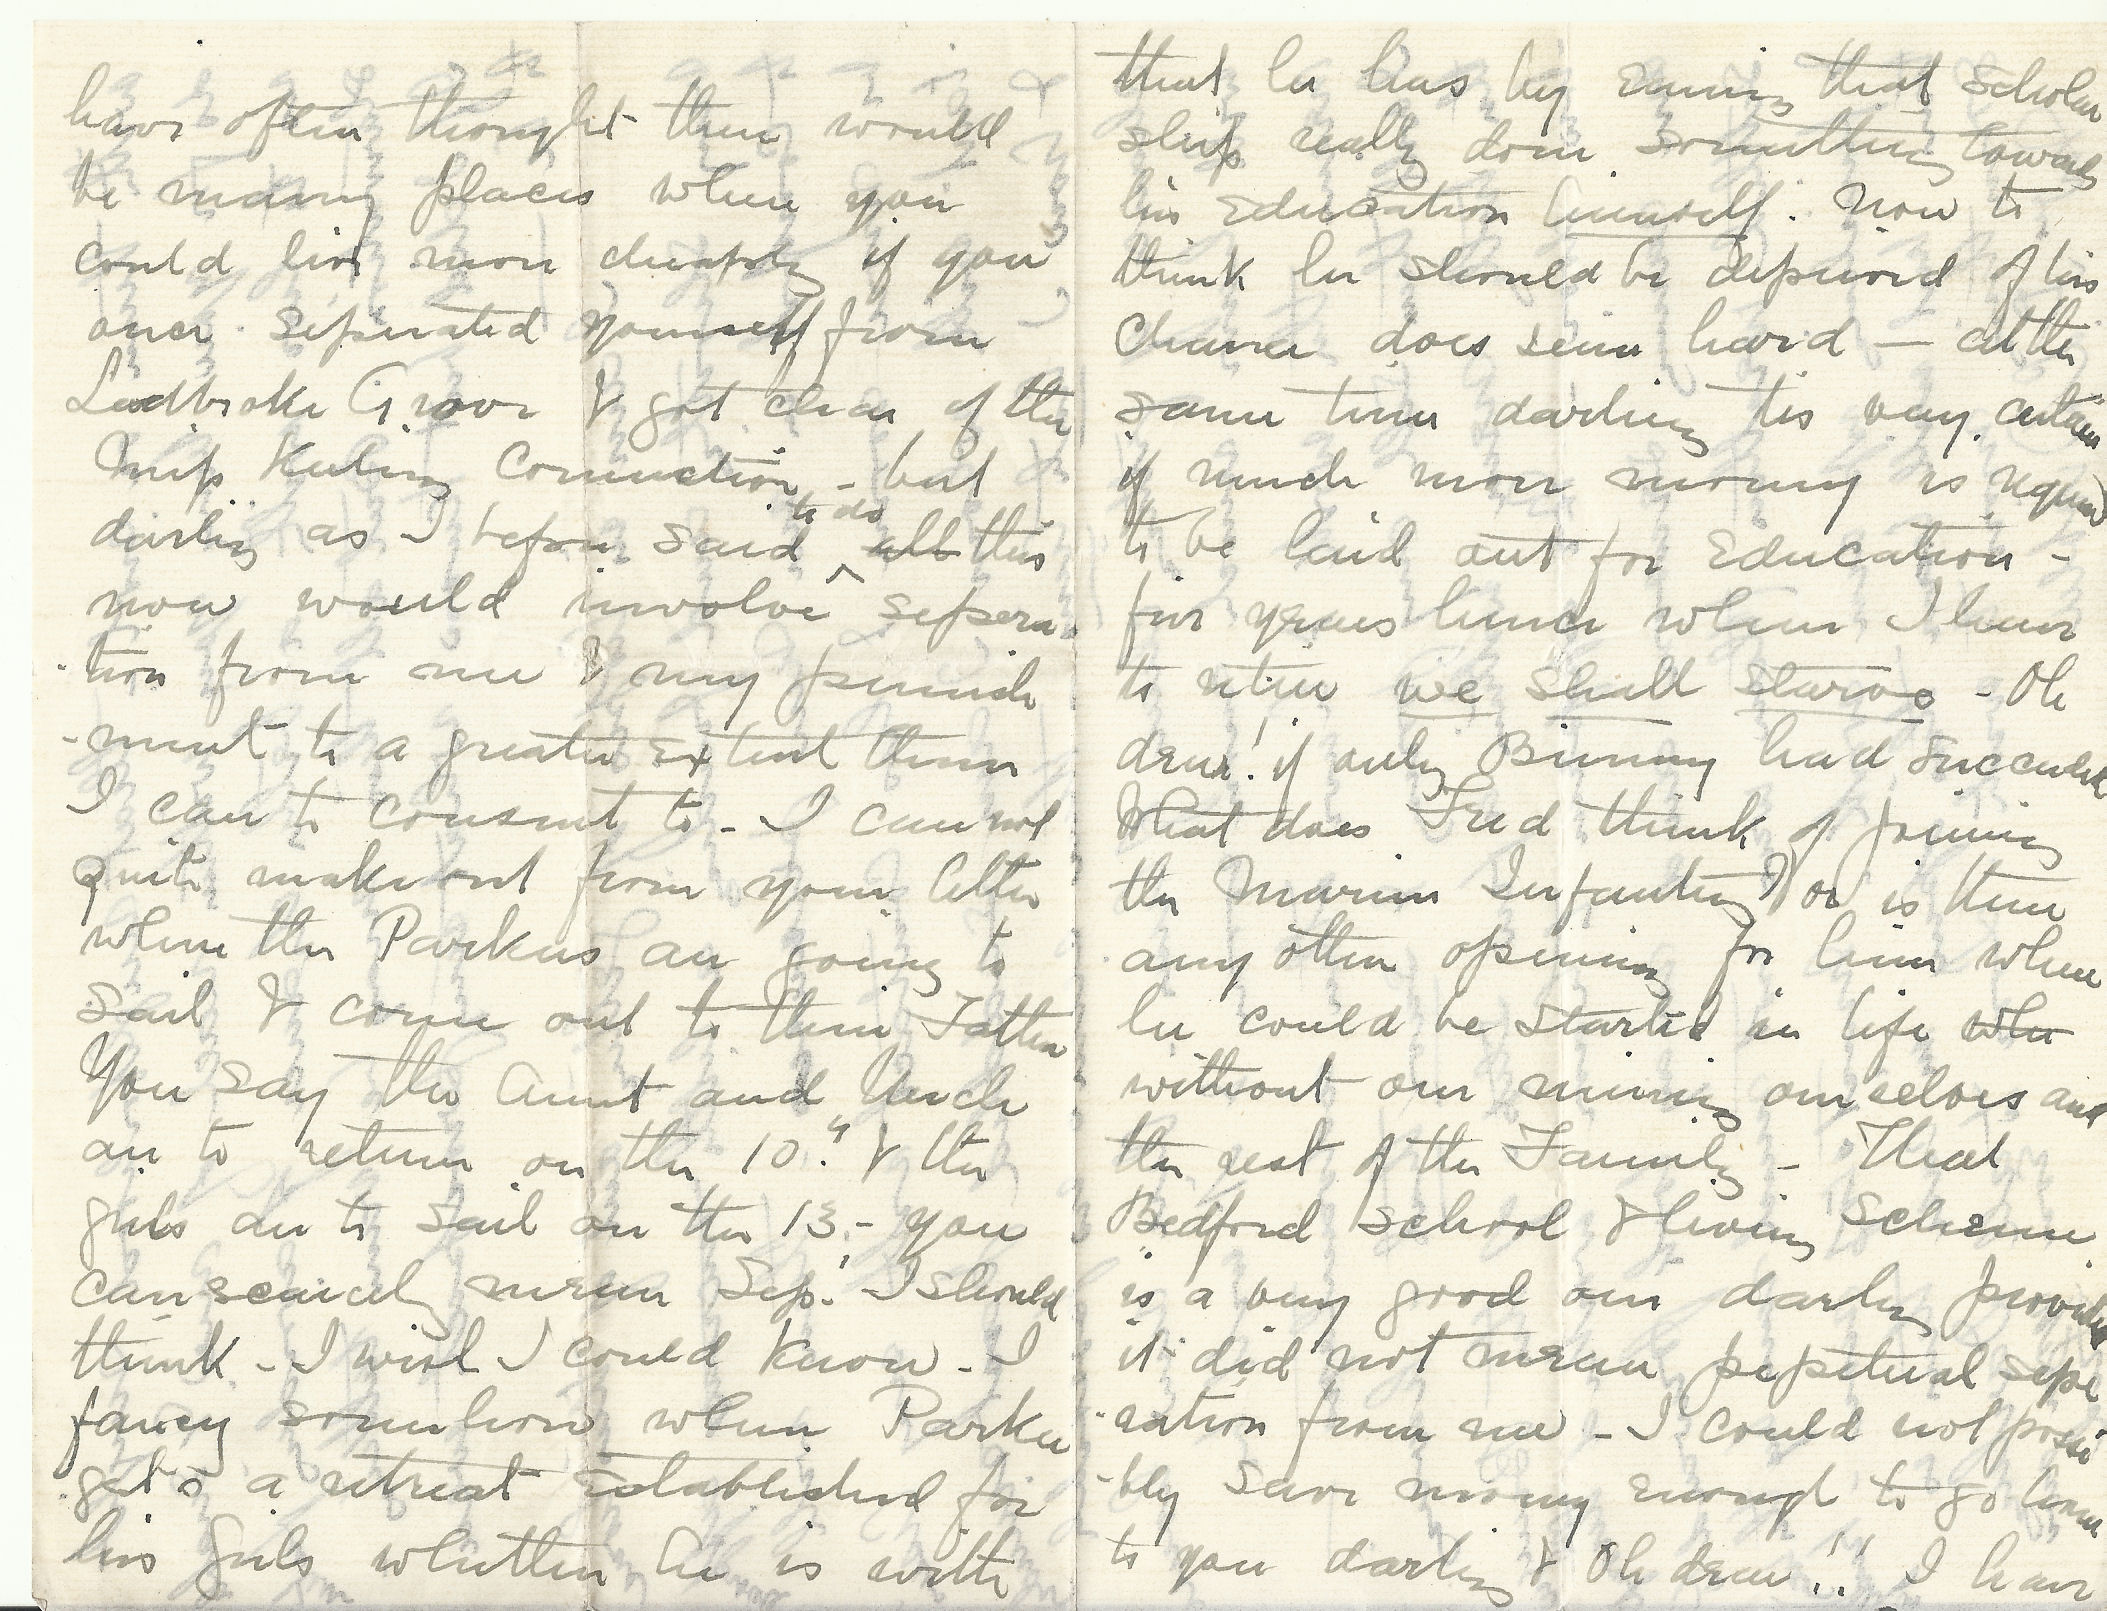 have often thought there would
be many places where you
could live more cheaply if you
once seperated yourself from
Ladbroke Grove & got clear of the
Miss Keling Connection - but
darling as I before said to do all this
now would involve sepera
tion from me & my punish
-ment to a greater extent than
I care to consent to - I can not
quite make out from your letter
when the Parkers are going to
sail & come out to their Father
You say the Aunt and Uncle
are to return on the 10th & the
girls are to sail on the 13 - you
can scarcely mean Sep! I should
think - I wish I could know - I
fancy somehow when Parker
gets a retreat established for
his girls whether he is with
that he has by earning that scholar
ship really done something towards
his Education himself. Now to
think he should be deprived of his
chance does seem hard - at the
same time darling tis very certain
if much more money is required
to be laid out for Education -
five years hence when I have
to retire we shall starve - Oh
dear! if only Bunny had succeeded
What does Fred think of joining
the Marine Infantry? or is there
any other opening for him where
he could be started in life whe
without our ruining ourselves and
the rest of the Family - That
Bedford School & living Scheme
is a very good one darling provided
it did not mean pepetual sepe
-ration from me - I could not possi
-bly save money enough to go home
to you darling & Oh dear!! I have